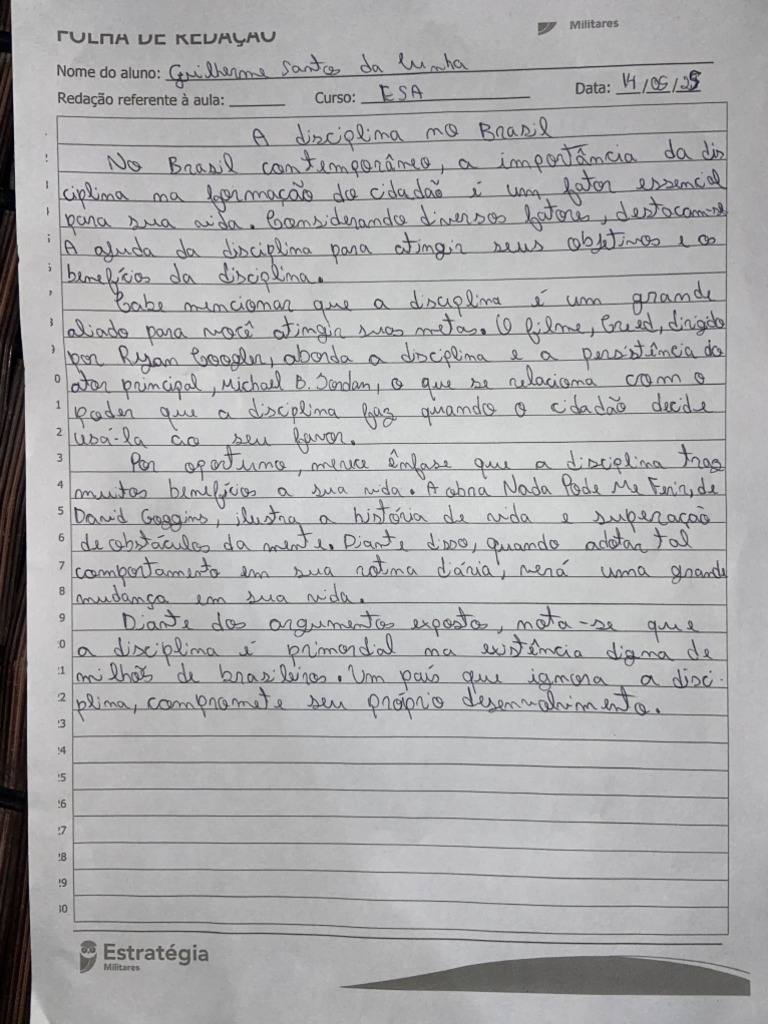 FOLHA DE REDAÇÃO
Militares
Nome do aluno: Guilherme Santos da Cunha
Redação referente à aula: Curso: ESA Data: 14/05/25
A disciplina no Brasil
No Brasil contemporâneo, a importância da dis
ciplina na formação do cidadão é um fator essencial
para sua vida. Considerando diversos fatores, destacam-se
A ajuda da disciplina para atingir seus objetivos e os
benefícios da disciplina.
Cabe mencionar que a disciplina é um grande
aliado para você atingir suas metas. O filme, Creed, dirigido
por Ryan Coogler, aborda a disciplina e a persistência do
ator principal, Michael B. Jordan, o que se relaciona com o
poder que a disciplina faz quando o cidadão decide
usá-la ao seu favor.
Por oportuno, merece ênfase que a disciplina traz
muitos benefícios a sua vida. A obra Nada Pode Me Ferir, de
David Goggins, ilustra a história de vida e superação
de obstáculos da mente. Diante disso, quando adotar tal
comportamento em sua rotina diária, verá uma grande
mudança em sua vida.
Diante dos argumentos expostos, nota-se que
a disciplina é primordial na existência digna de
milhões de brasileiros. Um país que ignora a disci-
plina, compromete seu próprio desenvolvimento.
Estratégia
Militares